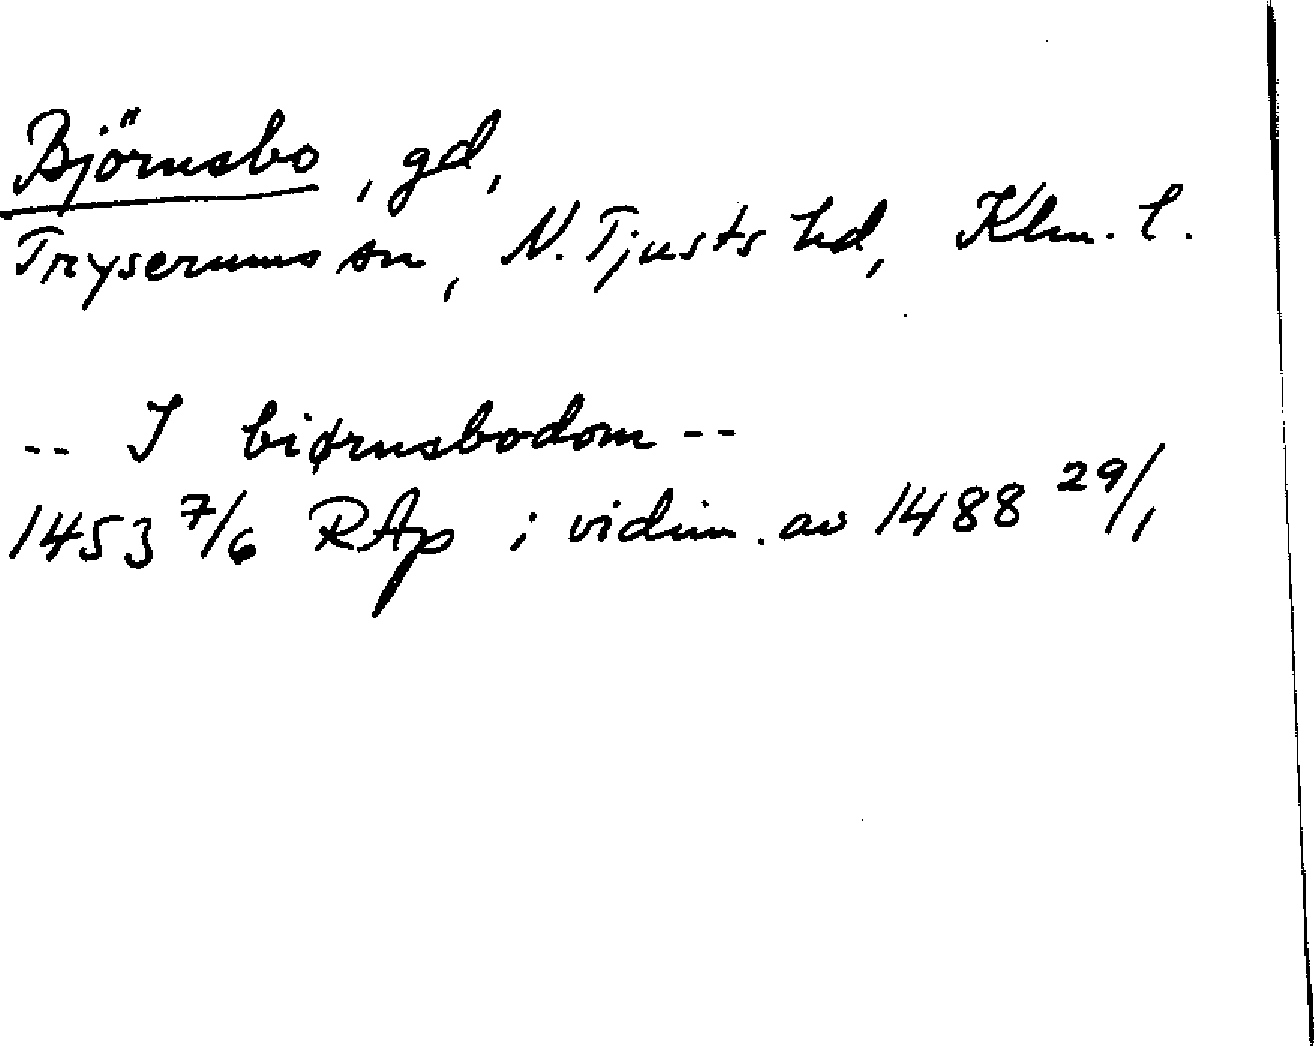 Björnsbo, gd,
Tryserums sn, N. Tjusts hd, Klm. l.
-- I biørnsbodom --
1453 7/6 RAp ; vidim. av 1488 29/1